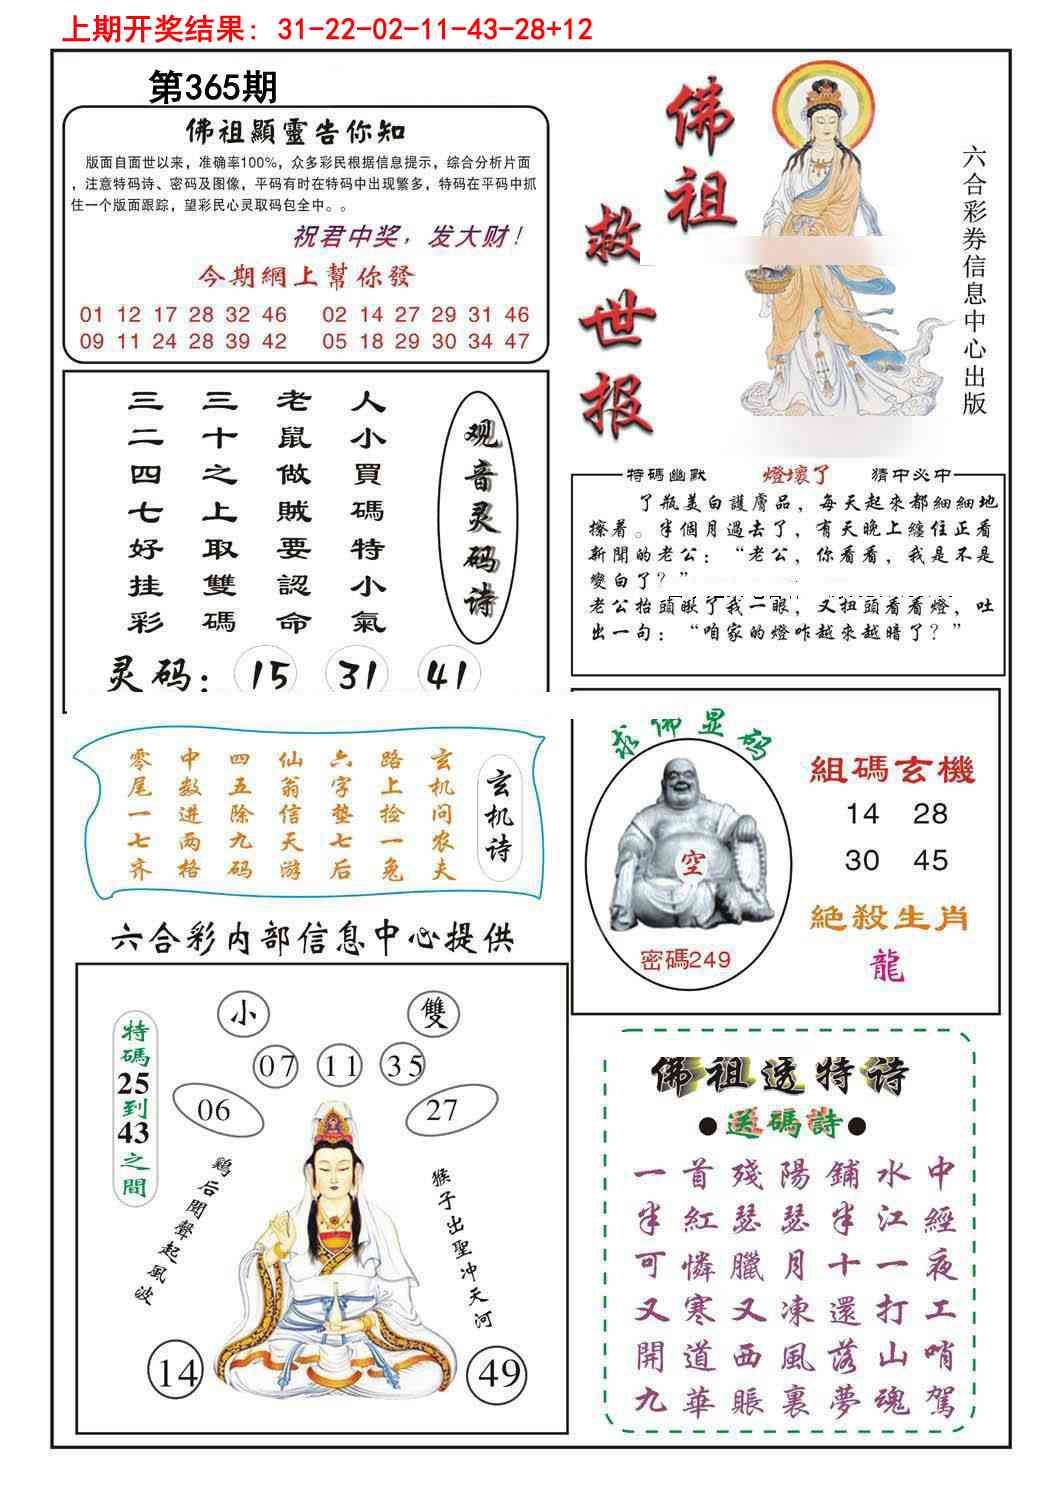 上期开奖结果: 31-22-02-11-43-28+12
第365期
佛祖顯靈告你知
版面自面世以来，准确率100%，众多彩民根据信息提示，综合分析片面
，注意特码诗、密码及图像，平码有时在特码中出现繁多，特码在平码中抓
住一个版面跟踪，望彩民心灵取码包全中。。
祝君中奖，发大财！
今期網上幫你發
01 12 17 28 32 46 02 14 27 29 31 46
09 11 24 28 39 42 05 18 29 30 34 47
佛祖
救世报
六合彩券信息中心出版
观音灵码诗
人小買碼特小氣
老鼠做賊要認命
三十之上取雙碼
三二四七好挂彩
灵码：15 31 41
特碼幽默 燈壞了 猜中必中
了瓶美白護膚品，每天起來都細細地
擦着。半個月過去了，有天晚上纏住正看
新聞的老公：“老公，你看看，我是不是
變白了？”
老公抬頭瞅了我一眼，又扭頭看看燈，吐
出一句：“咱家的燈咋越來越暗了？”
玄机诗
玄机问农夫
路上捡一兔
六字垫七后
仙翁信天游
四五除九码
中数进两格
零尾一七齐
求佛显码
空
密碼249
組碼玄機
14 28
30 45
絕殺生肖
龍
六合彩内部信息中心提供
特碼25到43之間
小 雙
07 11 35
06 27
鷄后聞聲起風波
猴子出聖冲天河
14 49
佛祖透特诗
●送碼詩●
一首殘陽鋪水中
半紅瑟瑟半江經
可憐臘月十一夜
又寒又凍還打工
開道西風落山哨
九華賬裏夢魂駕